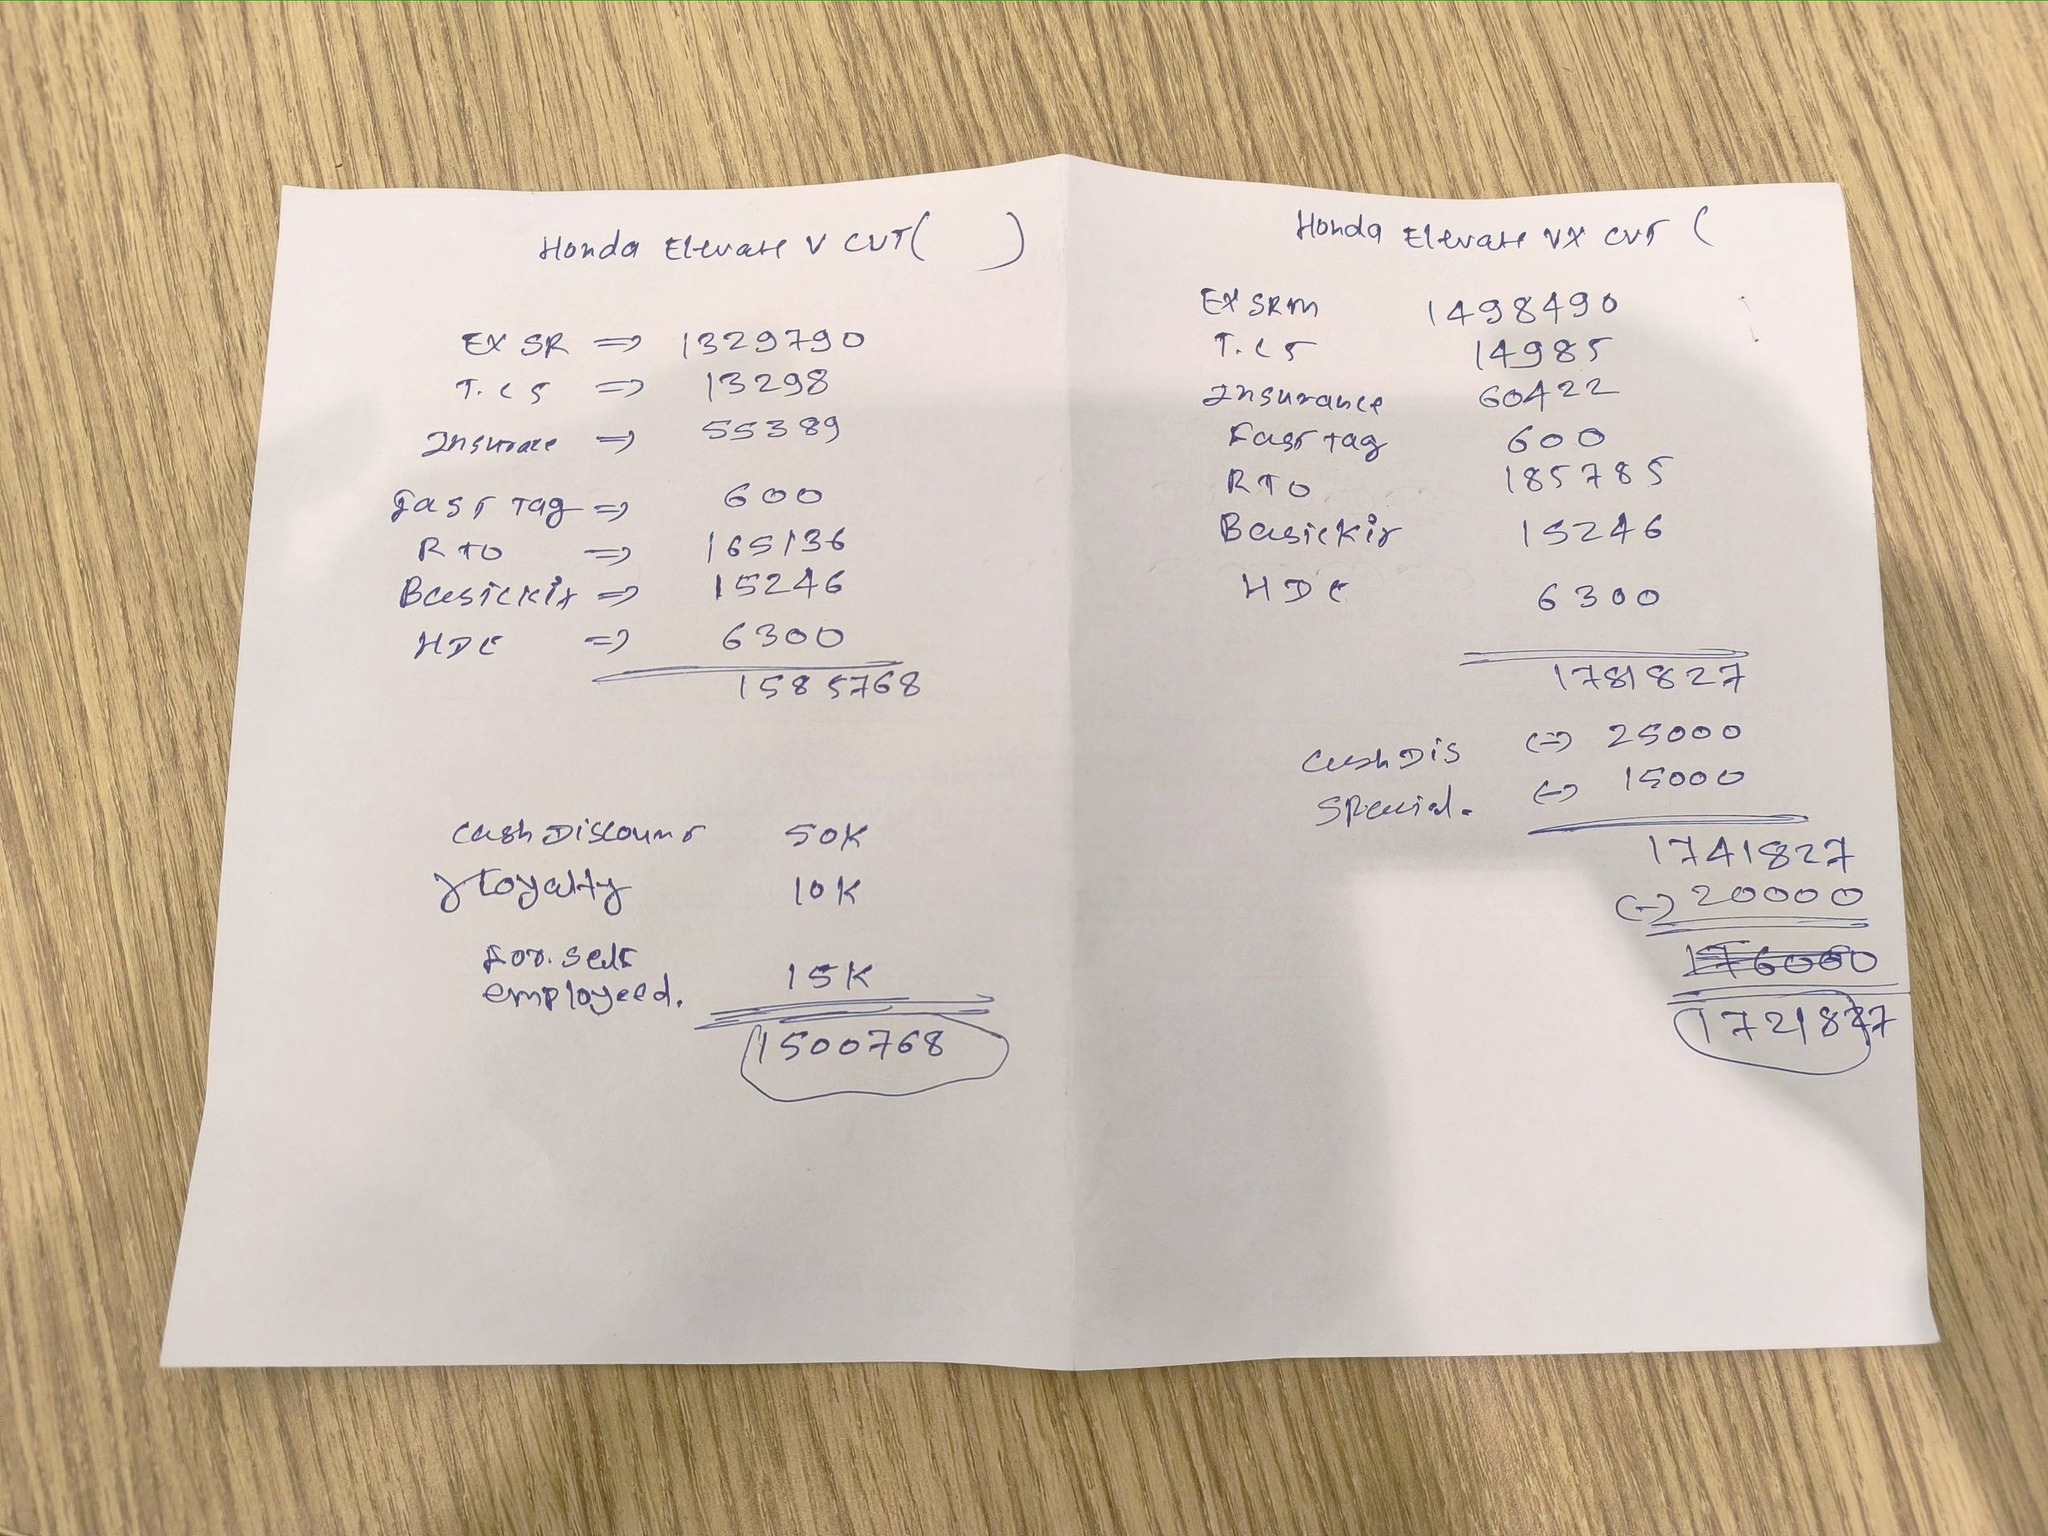 Honda Elevate V CVT ( )
EX SR => 1329790
T.C S => 13298
Insurace => 55389
Fast Tag => 600
RTO => 165136
Basickit => 15246
HDC => 6300
1585768
Cash Discount 50K
Loyalty 10K
For. Self 15K
employeed.
1500768
Honda Elevate VX CVT (
EX SRM 1498490
T.C S 14985
Insurance 60422
Fast tag 600
RTO 185785
Basickit 15246
HDC 6300
1781827
Cash Dis (-) 25000
Special. (-) 15000
1741827
(-) 20000
1721827